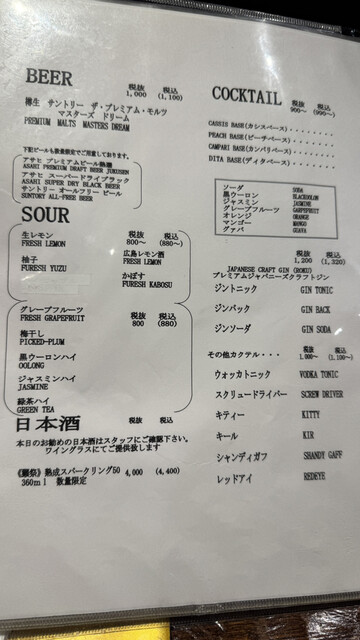 BEER
税抜 税込
1,000 (1,100)
樽生 サントリー ザ・プレミアム・モルツ
マスターズ ドリーム
PREMIUM MALTS MASTERS DREAM
下記ビールも数量限定でご用意しております。
アサヒ プレミアムビール熟撰
ASAHI PREMIUM DRAFT BEER JUKUSEN
アサヒ スーパードライブラック
ASAHI SUPER DRY BLACK BEER
サントリー オールフリー ビール
SUNTORY ALL-FREE BEER
SOUR
生レモン 税抜 税込
FRESH LEMON 800～ (880～)
広島レモン酒
FRESH LEMON
柚子
FURESH YUZU
かぼす
FURESH KABOSU
グレープフルーツ 税抜 税込
FRESH GRAPEFRUIT 800 (880)
梅干し
PICKED-PLUM
黒ウーロンハイ
OOLONG
ジャスミンハイ
JASMINE
緑茶ハイ
GREEN TEA
日本酒 税抜 税込
本日のお勧めの日本酒はスタッフにご確認下さい。
ワイングラスにてご提供致します
熟成スパークリング50 4,000 (4,400)
360ml 数量限定
COCKTAIL 税抜 税込
900～ (990～)
CASSIS BASE(カシスベース)・・・・・・・・
PEACH BASE(ピーチベース)・・・・・・・・
CAMPARI BASE(カンパリベース)・・・・・・
DITA BASE(ディタベース)・・・・・・・・
ソーダ SODA
黒ウーロン BLACKOOLON
ジャスミン JASMINE
グレープフルーツ GRAPEFRUIT
オレンジ ORANGE
マンゴー MANGO
グァバ GUAVA
税抜 税込
1,200 (1,320)
JAPANESE CRAFT GIN (ROKU)
プレミアムジャパニーズクラフトジン
ジントニック GIN TONIC
ジンバック GIN BACK
ジンソーダ GIN SODA
その他カクテル・・・ 税抜 税込
1,000～ (1,100～)
ウォッカトニック VODKA TONIC
スクリュードライバー SCREW DRIVER
キティー KITTY
キール KIR
シャンディガフ SHANDY GAFF
レッドアイ REDEYE